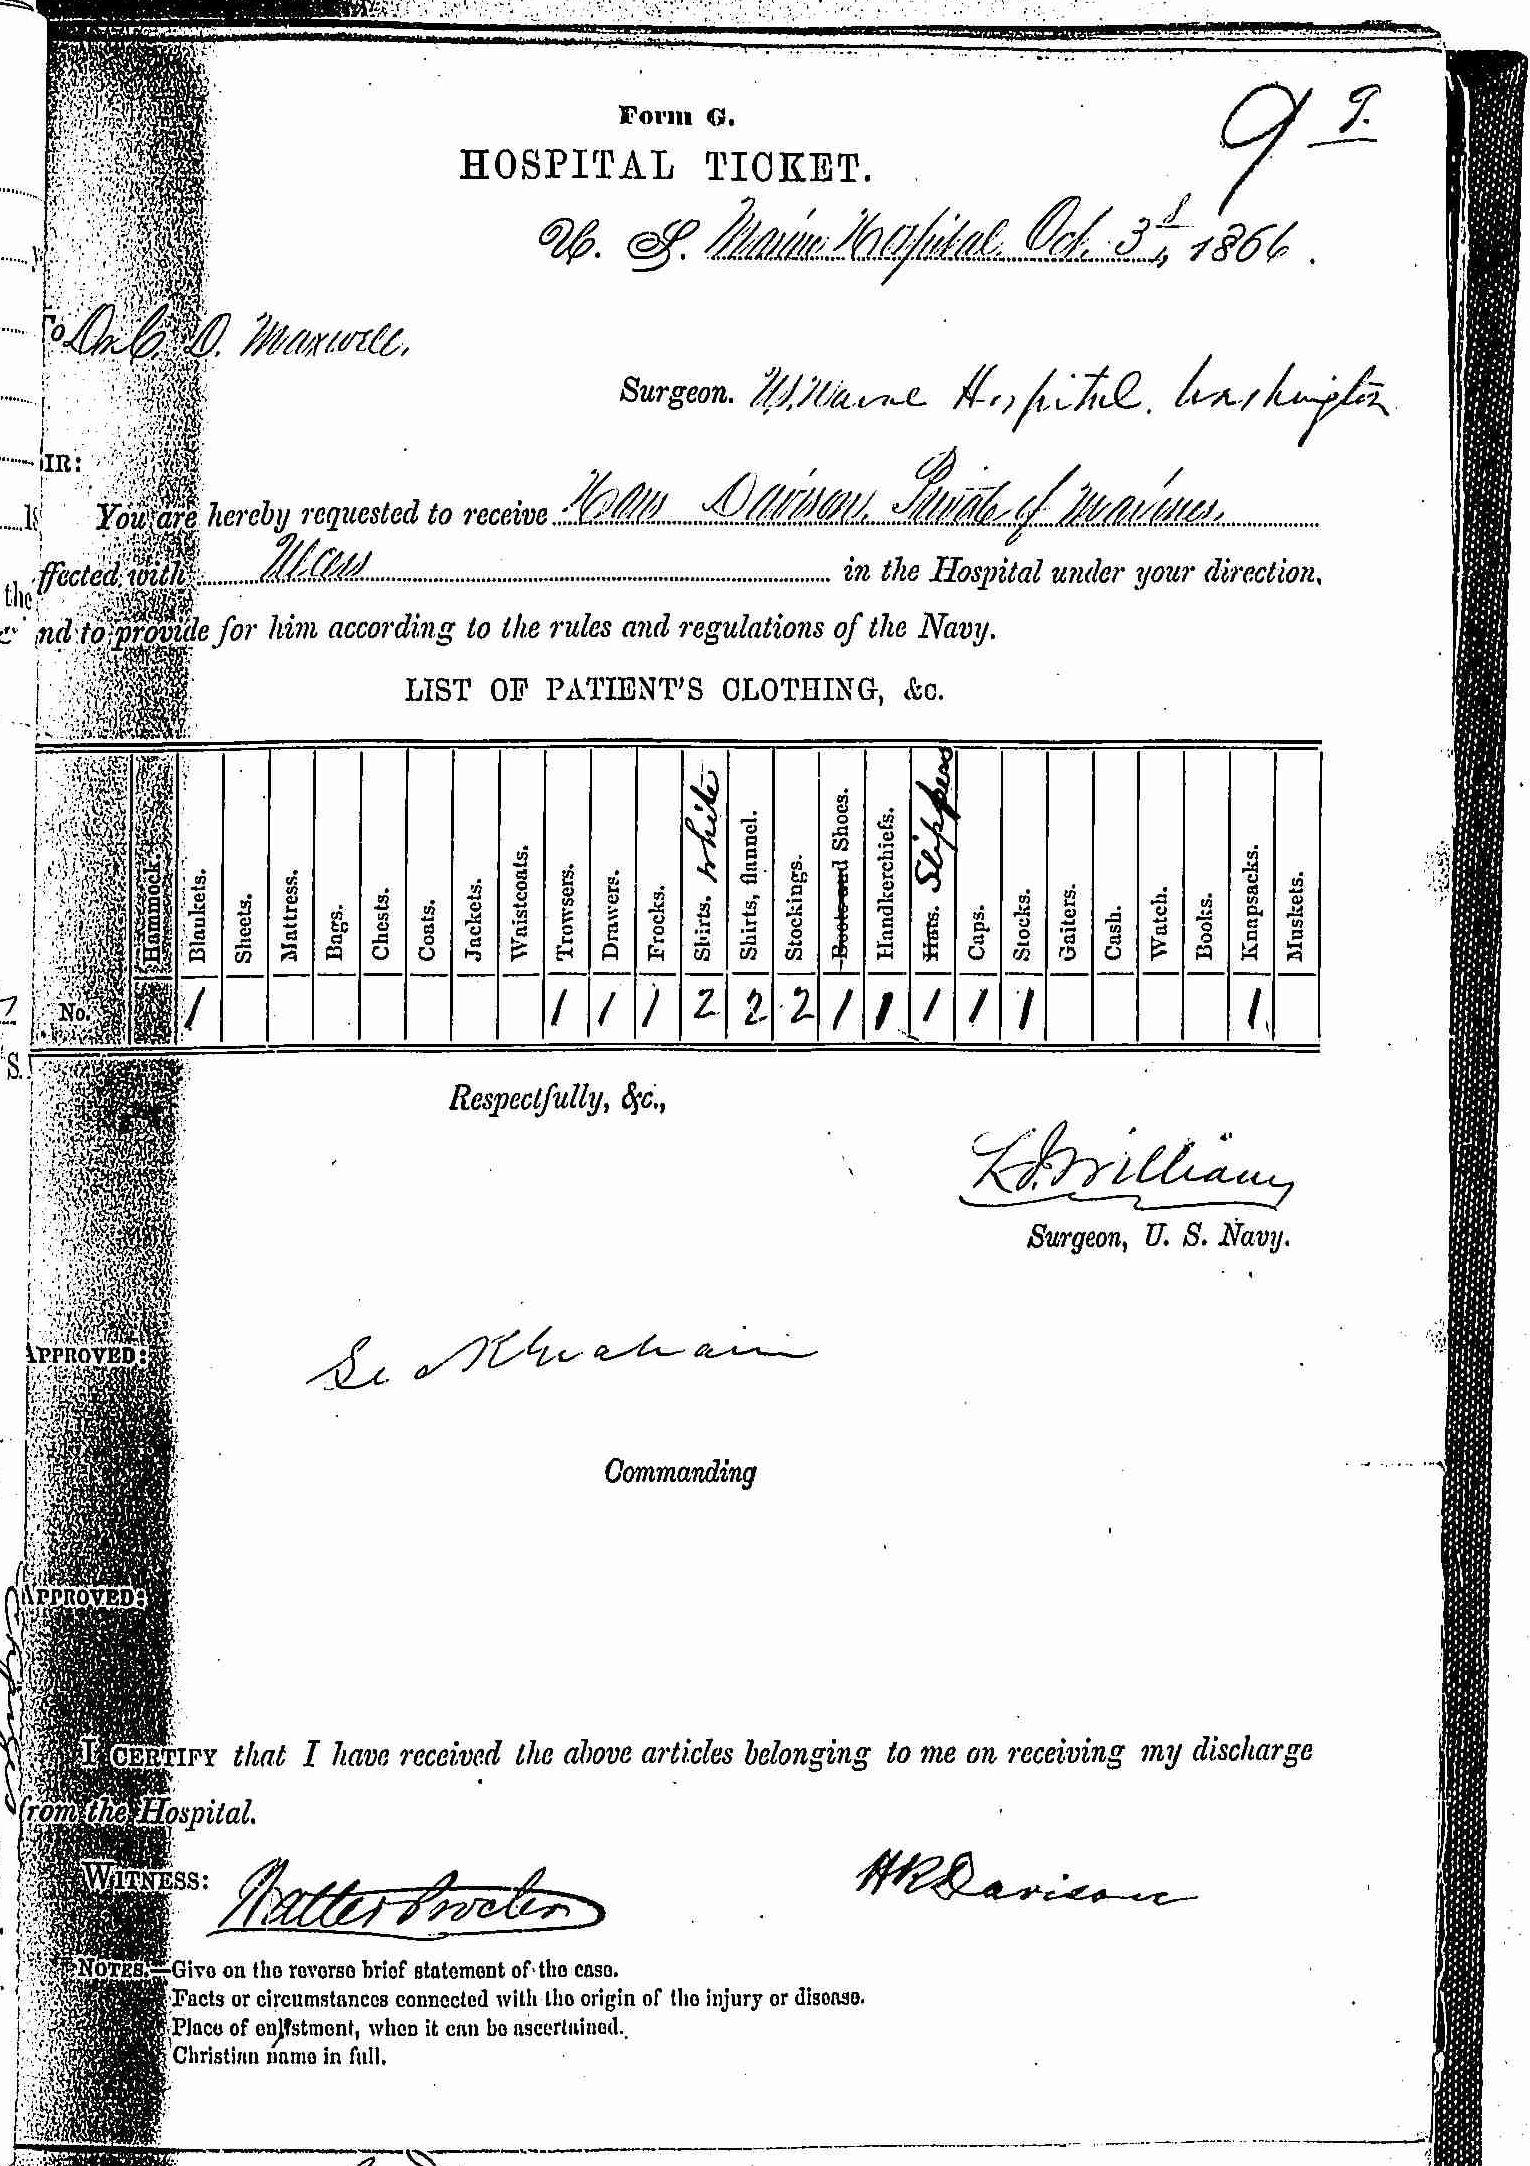 Form G.
9 9.
HOSPITAL TICKET.
U. S. Marine Hospital Oct. 3d, 1866.
To Dr. C. D. Maxwell.
Surgeon. U.S. Naval Hospital. Washington
IR:
You are hereby requested to receive Hans Davison, Private of Marines,
ffected with Ulcers in the Hospital under your direction,
nd to provide for him according to the rules and regulations of the Navy.
LIST OF PATIENT'S CLOTHING, &c.
Hammock. Blankets. Sheets. Mattress. Bags. Chests. Coats. Jackets. Waistcoats. Trowsers. Drawers. Frocks. Shirts. white Shirts, flannel. Stockings. Boots and Shoes. Handkerchiefs. Hats. Slippers Caps. Stocks. Gaiters. Cash. Watch. Books. Knapsacks. Muskets.
No. 1 1 1 1 2 2 2 1 1 1 1 1 1
Respectfully, &c.,
L. J. Williams
Surgeon, U. S. Navy.
APPROVED:
Graham
Commanding
APPROVED:
I CERTIFY that I have received the above articles belonging to me on receiving my discharge
from the Hospital.
WITNESS: Walter H R Davison
NOTES.—Give on the reverse brief statement of the case.
Facts or circumstances connected with the origin of the injury or disease.
Place of enlistment, when it can be ascertained.
Christian name in full.